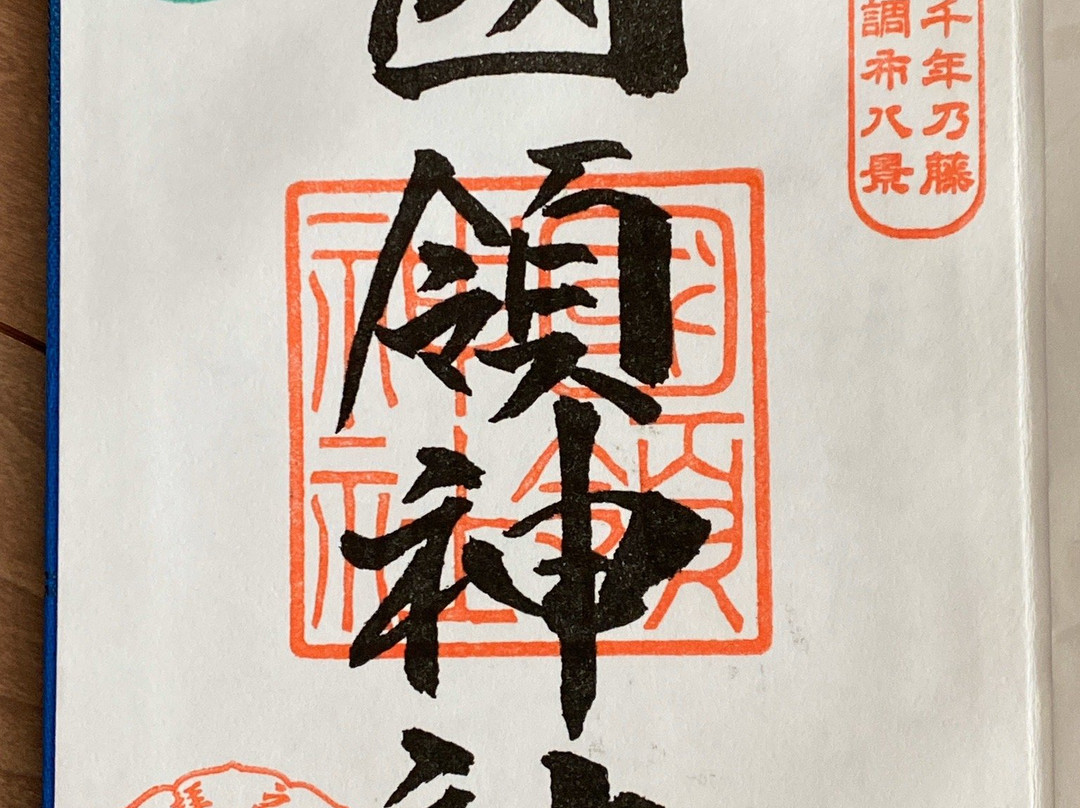 千年乃藤
調布八景
國領神
國領
神社